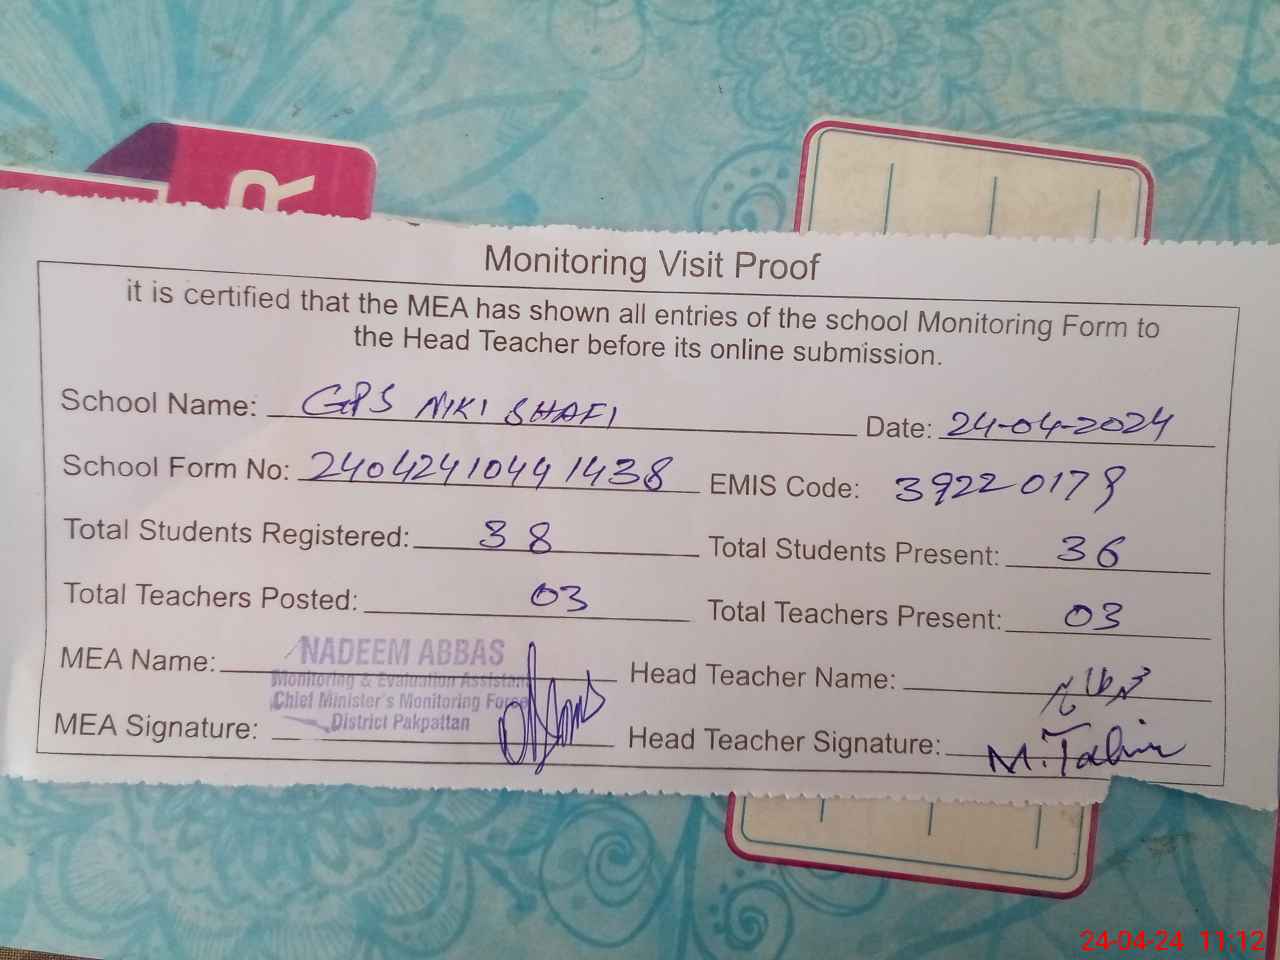 R
Monitoring Visit Proof
it is certified that the MEA has shown all entries of the school Monitoring Form to
the Head Teacher before its online submission.
School Name: GPS NIKI SHAFI Date: 24-04-2024
School Form No: 24042410441438 EMIS Code: 39220179
Total Students Registered: 38 Total Students Present: 36
Total Teachers Posted: 03 Total Teachers Present: 03
MEA Name: NADEEM ABBAS Head Teacher Name:
Monitoring & Evaluation Assistant
Chief Minister's Monitoring Force
District Pakpattan
MEA Signature: Head Teacher Signature: M. Tahir
24-04-24 11:12